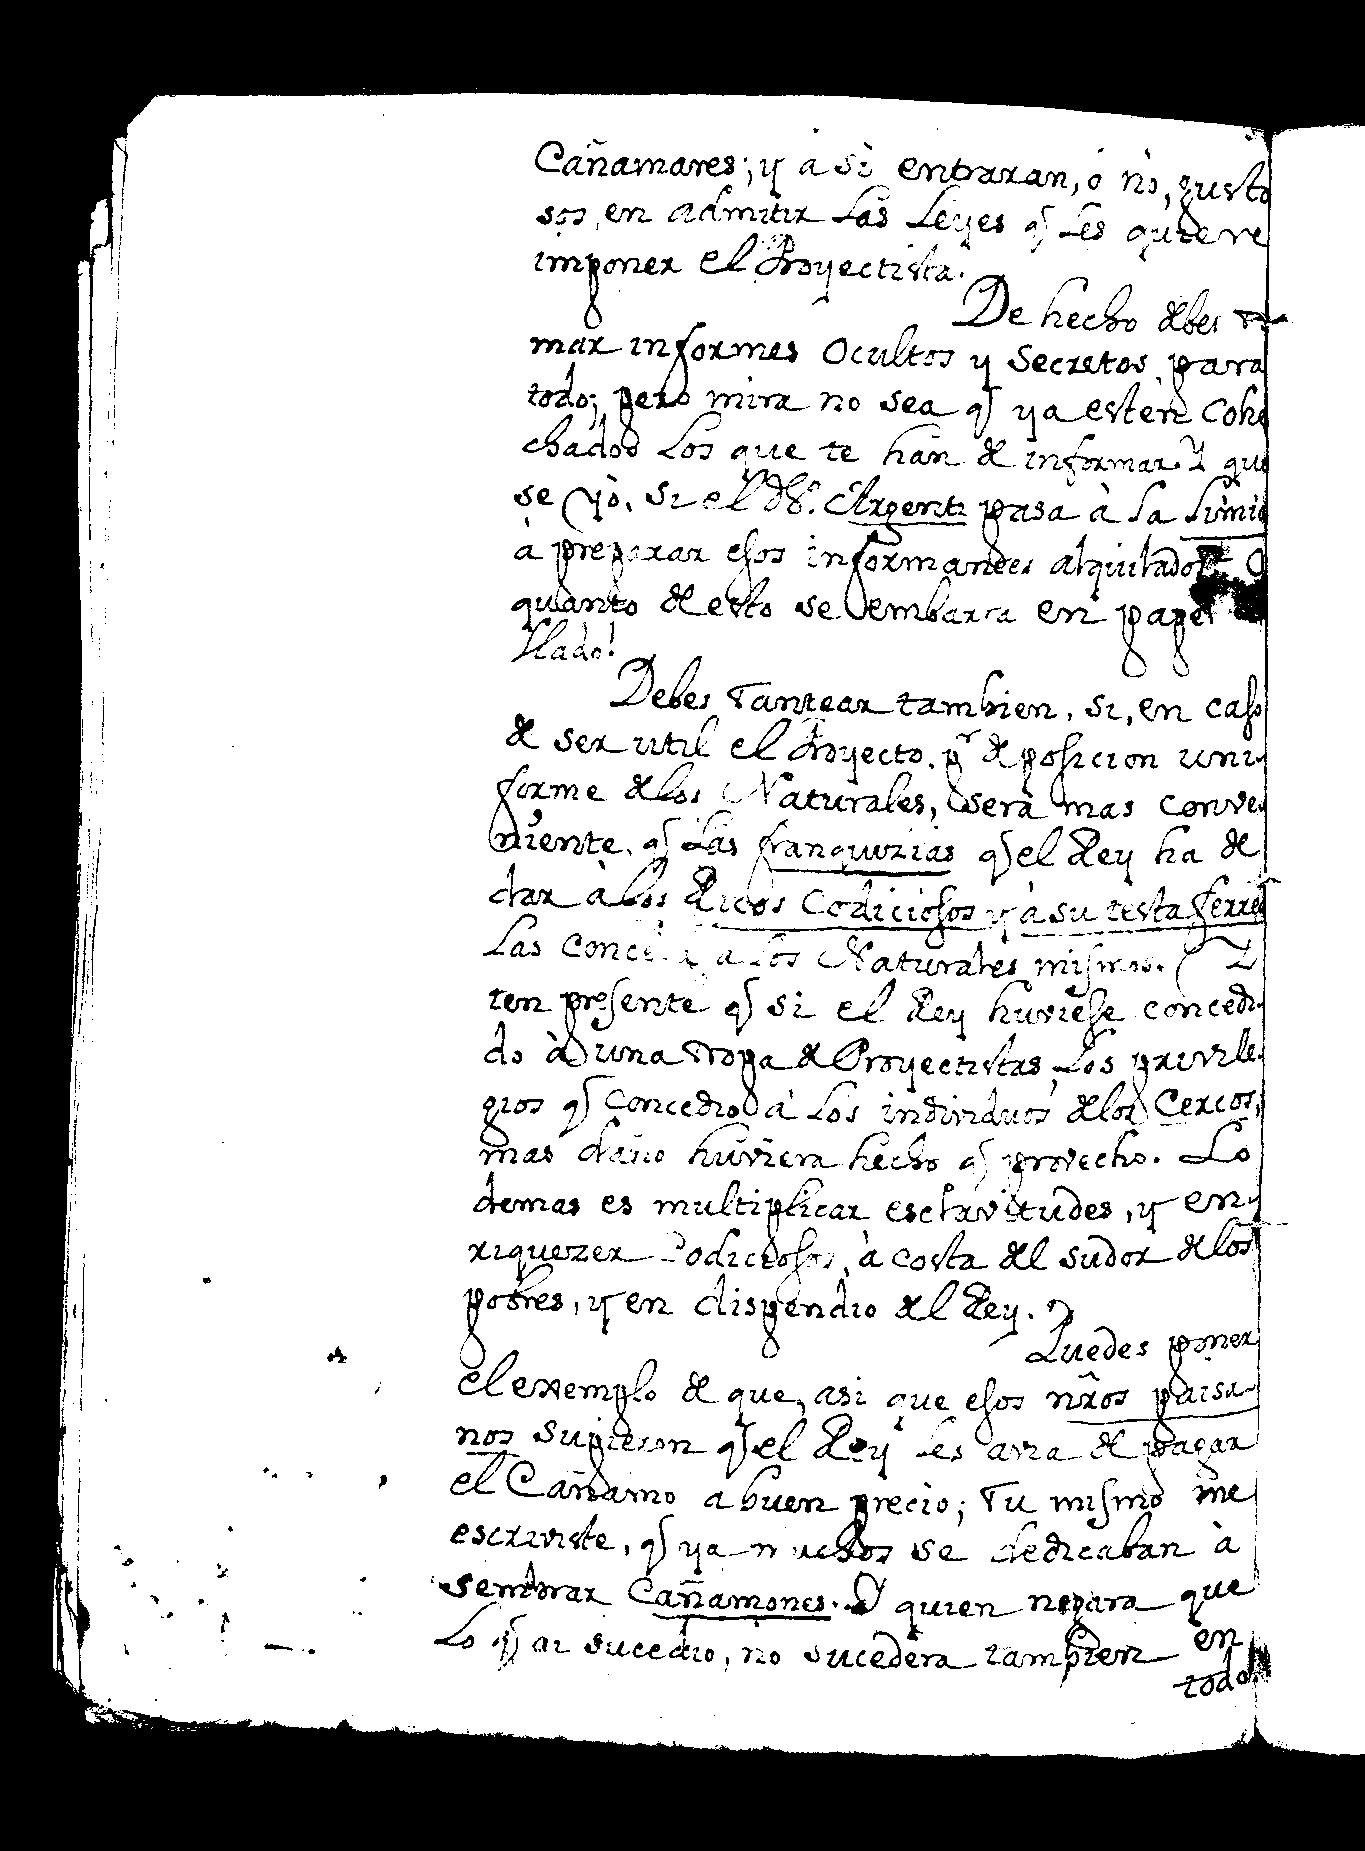 Cañamares; y à sì entraran, ò nò, gusto
sos, en admitir Las Leyes q̃ Les quiere
imponer el Proyectista.
De hecho debes to
mar informes Ocultos y Secretos para
todo; pero mira no sea q̃ ya estèn Cohe
chados Los que te han de informar. Y que
se yò, si el Dr. Argenti pasa à La Limia
à preparar esos informandes alquilados? O
quanto de esto se embarca en pape
llado!
Debes Tantear tambien, si, en caso
de ser util el Proyecto, pr. deposicion uni-
forme de los Naturales, serà mas conve-
niente, q̃ Las franquezias q̃ el Rey ha de
dar à los Ricos Codiciosos y à su testa ferrea
Las conceda a Los Naturales mismos. Y
ten presente q̃ si el Rey huviese concedi-
do à una tropa de Proyectistas Los privile-
gios q̃ Concedio à Los individuos de los Cercos,
mas daño huviera hecho q̃ provecho. Lo
demas es multiplicar esclavitudes, y en-
riquezer Codiciosos, à costa del sudor de los
pobres, y en dispendio del Rey.
Puedes poner
el exemplo de que, asi que esos nr̃os paisa-
nos supieron q̃ el Rey Les avia de pagar
el Cañamo a buen precio; Tu mismo me
escriviste, q̃ ya muchos se dedicaban à
sembrar Cañamones. Y quien negara que
Lo q̃ ai sucedio, no sucedera tambien en
todo